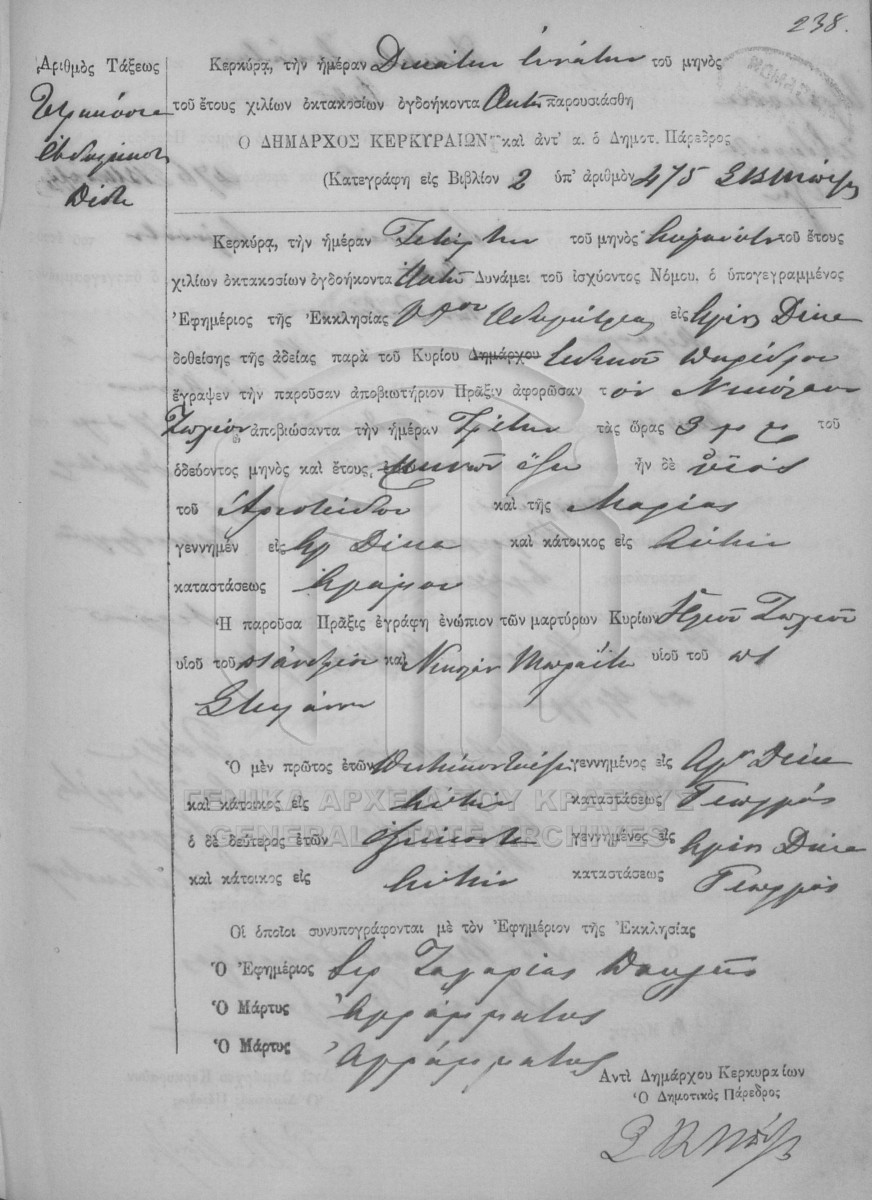 238.
Ἀριθμὸς Τάξεως
Τετρακόσια
ἑβδομήκοντα
πέντε
Κερκύρᾳ, τὴν ἡμέραν Δεκάτην ἐννάτην τοῦ μηνὸς
τοῦ ἔτους χιλίων ὀκτακοσίων ὀγδοήκοντα Ὀκτώ παρουσιάσθη
Ο ΔΗΜΑΡΧΟΣ ΚΕΡΚΥΡΑΙΩΝ καὶ ἀντ' α. ὁ Δημοτ. Πάρεδρος
(Κατεγράφη εἰς Βιβλίον 2 ὑπ' ἀριθμὸν 475
Κερκύρᾳ, τὴν ἡμέραν Τετάρτην τοῦ μηνὸς Αὐγούστου τοῦ ἔτους
χιλίων ὀκτακοσίων ὀγδοήκοντα Ὀκτώ Δυνάμει τοῦ ἰσχύοντος Νόμου, ὁ ὑπογεγραμμένος
Ἐφημέριος τῆς Ἐκκλησίας Ὁδηγήτριας εἰς Ἁγίους Δέκα
δοθείσης τῆς ἀδείας παρὰ τοῦ Κυρίου Δημάρχου Εἰδικοῦ Παρέδρου
ἔγραψεν τὴν παροῦσαν ἀποβιωτήριον Πρᾶξιν ἀφορῶσαν τ ὸν Νικόλαον
ἀποβιώσαντα τὴν ἡμέραν Τρίτην τὰς ὥρας 3 μ μ τοῦ
ὁδεύοντος μηνὸς καὶ ἔτους, μηνῶν ἕξη ἦν δὲ υἱός
τοῦ Ἀριστείδου καὶ τῆς Μαρίας
γεννημέν εἰς Ἁγ Δέκα καὶ κάτοικος εἰς Αὐτήν
καταστάσεως Ἄγαμου
Ἡ παροῦσα Πρᾶξις ἐγράφη ἐνώπιον τῶν μαρτύρων Κυρίων
υἱοῦ τοῦ καὶ Νικολάου υἱοῦ τοῦ
Στυλιάνου
Ὁ μὲν πρῶτος ἐτῶν γεννημένος εἰς Ἁγ Δέκα
καὶ κάτοικος εἰς Αὐτήν καταστάσεως Γεωργός
ὁ δὲ δεύτερος ἐτῶν ἑξήκοντα γεννημένος εἰς Ἁγίους Δέκα
καὶ κάτοικος εἰς Αὐτήν καταστάσεως Γεωργός
Οἱ ὁποῖοι συνυπογράφονται μὲ τὸν Ἐφημέριον τῆς Ἐκκλησίας
Ὁ Ἐφημέριος Ἱερ Ζαχαρίας
Ὁ Μάρτυς Ἀγράμματος
Ὁ Μάρτυς Ἀγράμματος
Ἀντὶ Δημάρχου Κερκυραίων
Ὁ Δημοτικὸς Πάρεδρος
ΓΕΝΙΚΑ ΑΡΧΕΙΑ ΤΟΥ ΚΡΑΤΟΥΣ
GENERAL STATE ARCHIVES